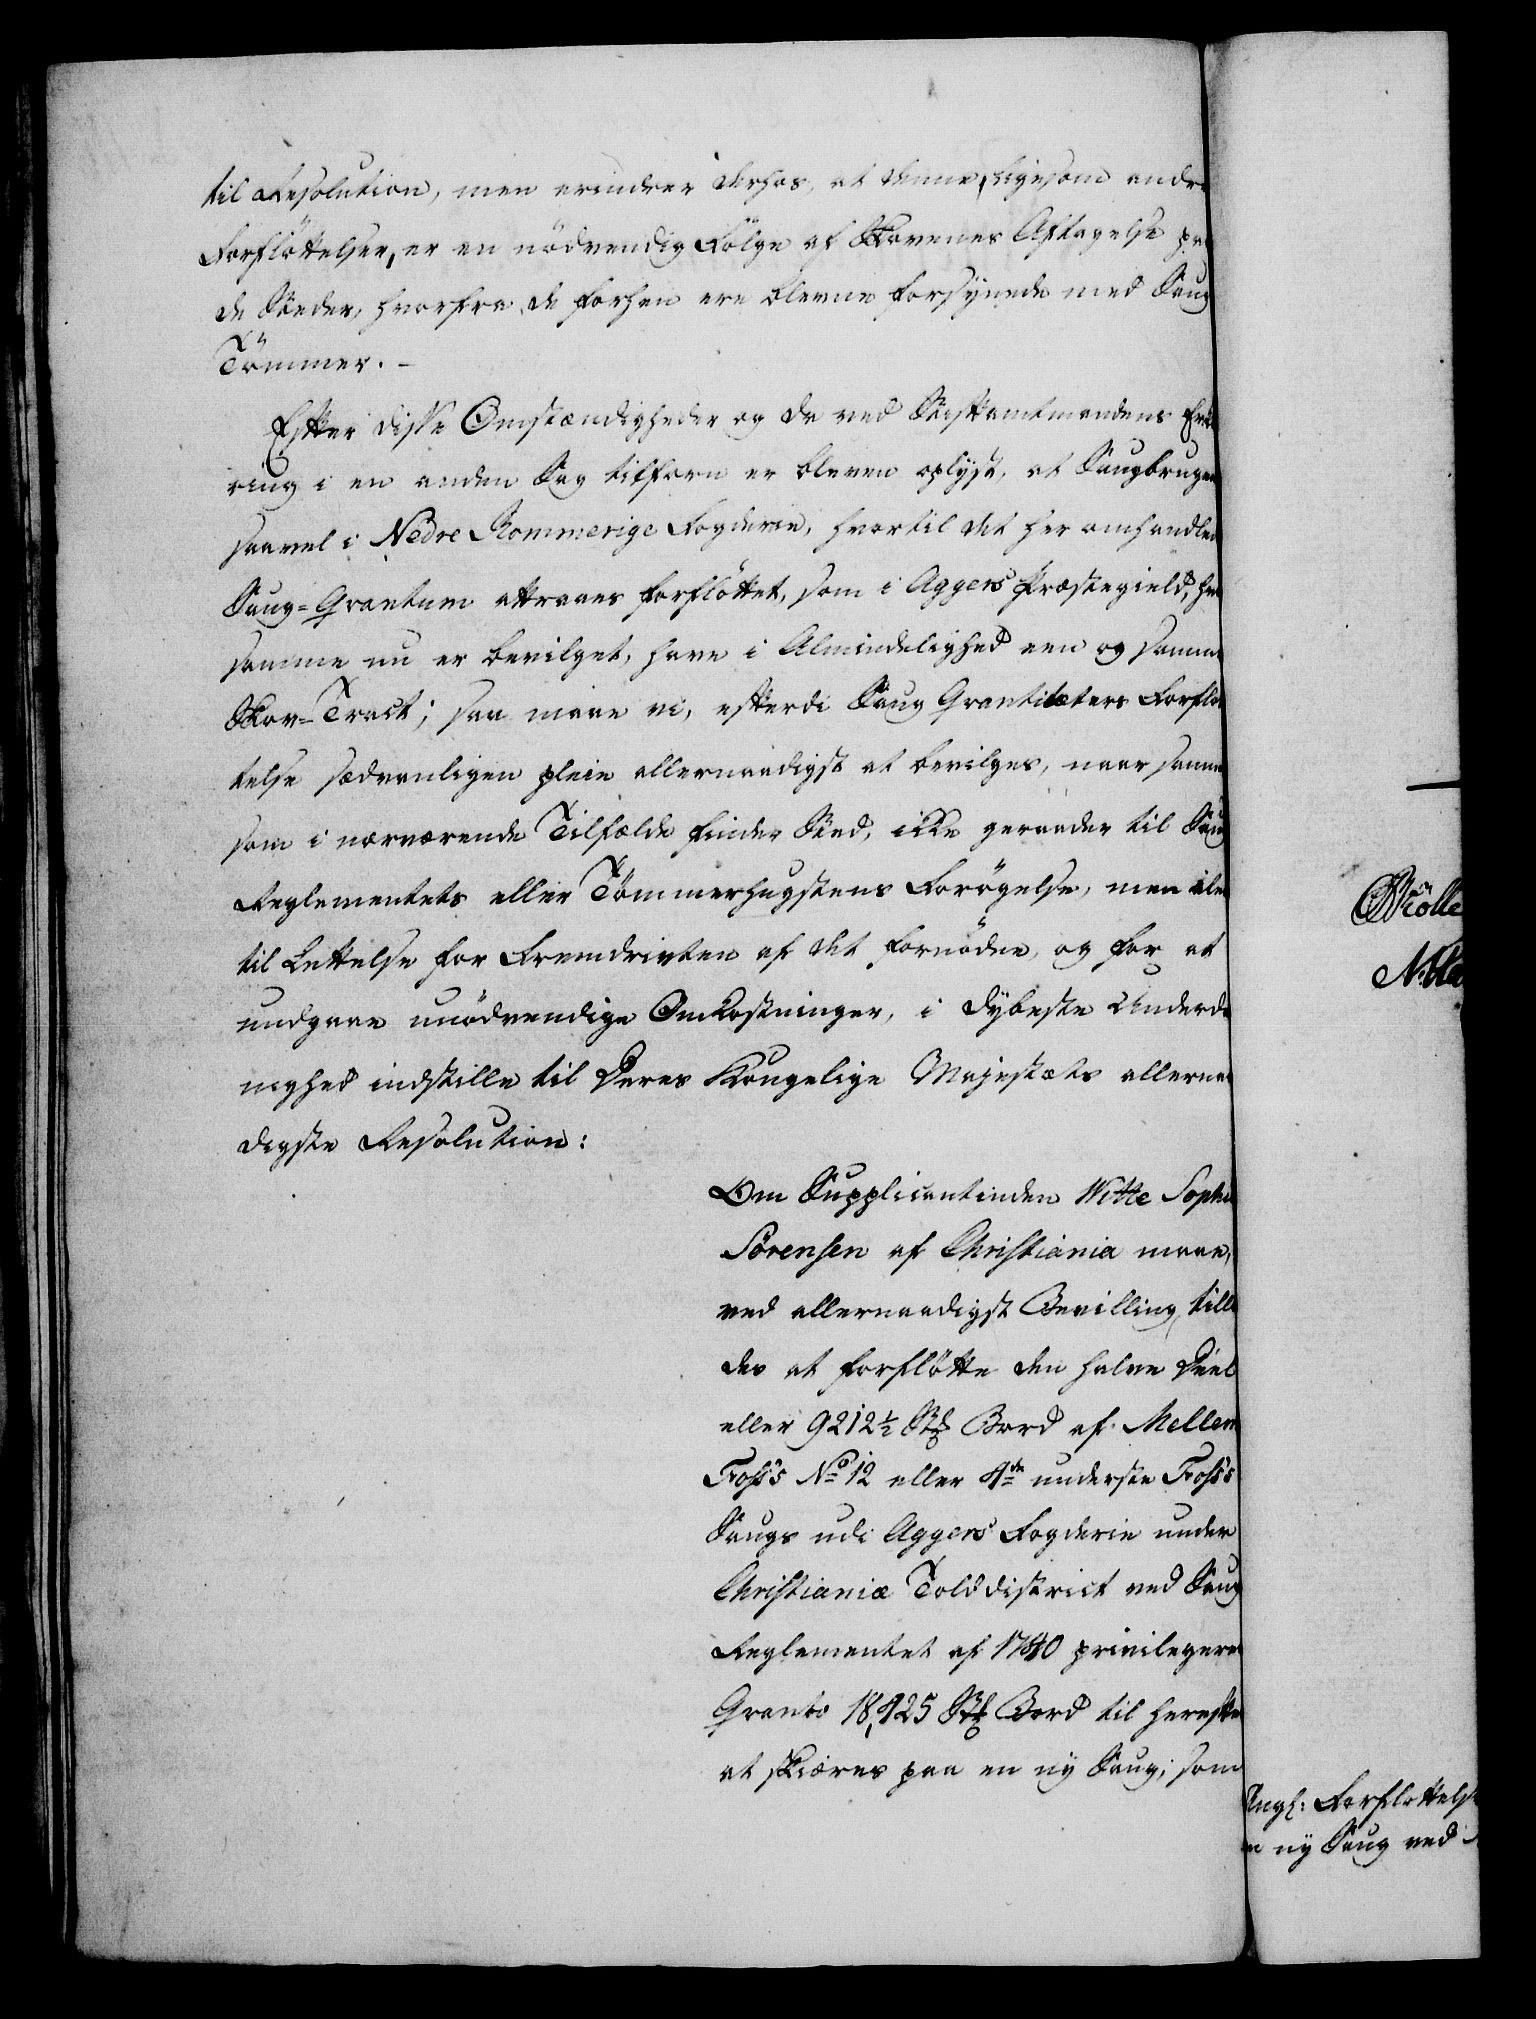 til Resolution, men erindrer derhos, at denne, ligesom andre
Forflöttelser, er en nödvendig Fölge af Skovenes Aftagelse paa
de Stæder, hvorfra de forhen ere blevne forsynede med Saug
Tömmer. –
Efter disse Omstændigheder og da ved Stiftamtmandens Erklæ
ring i en anden Sag tilforn er bleven oplyst, at Saugbrugene
saavel i Nedre Rommerige Fogderie, hvortil det her omhandlede
Saug-Qvantum attraaes forflöttet, som i Aggers Præstegield, hvor
samme nu er bevilget, have i Almindelighed een og samme
Skov-Tract; saa maae vi, efterdi Saug Qvantiteters Forflöt
telse sædvanligen pleie allernaadigst at bevilges, naar samme
som i nærværende Tilfælde finder Sted, ikke geraader til Saug
Reglementets eller Tömmerhugstens Forögelse, men
til Lettelse for Fremdrivten af det fornödne, og for at
undgaae unödvendige Omkostninger, i dybeste Underda
nighed indstille til Deres Kongelige Majestæts allernaa
digste Resolution:
Om Supplicantinden Witte Sophie
Sörensen af Christiania maae,
ved allernaadigst Bevilling, tilla
des at forflötte den halve Deel
eller 9212½ Stk Bord af Mellem
Foss's No 12 eller 4de underste Foss's
Saugs udi Aggers Fogderie under
Christianiæ Tolddistrict ved Saug
Reglementet af 1740 privilegerede
Qvanto 18,425 Stk Bord til herefter
at skiæres paa en ny Saug, som
Angl: Forflöttelse
en ny Saug ved